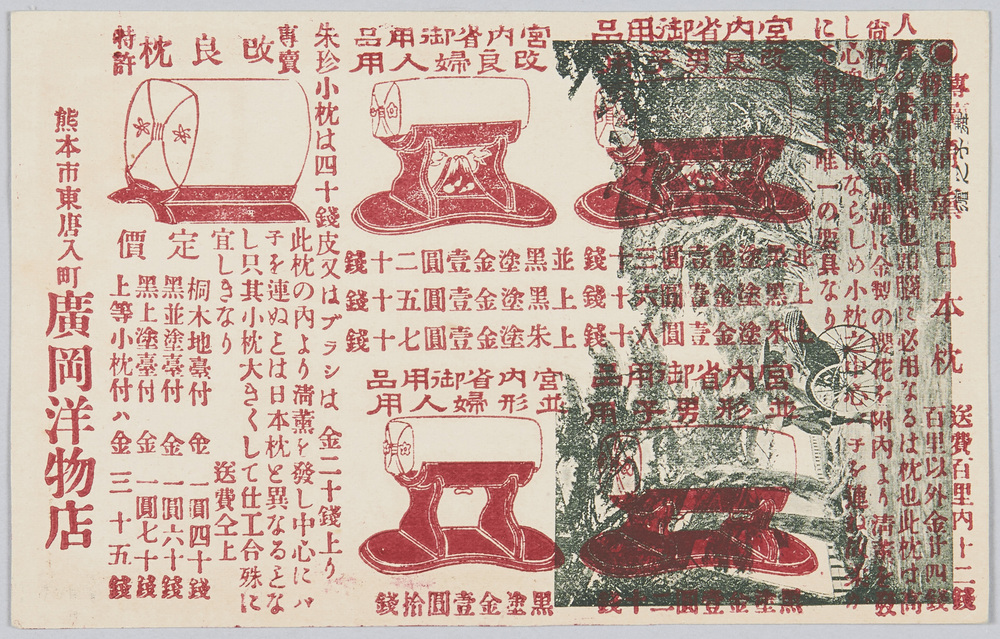 專賣
特許
清薰日本枕
送費百里内十二錢
百里以外金廿四錢
必用なるは枕也此枕は高
尙枕と小枕の兩端に金製の櫻花を附内より清薰を發
し心魂を爽快ならしめ小枕の中心ハ子を連ぬ
唯一の寢具なり
宮内省御用品
改良男子用
並黒塗金壹圓三十錢
上黒塗金壹圓六十錢
上朱塗金壹圓八十錢
宮内省御用品
並形男子用
黒塗金壹圓二十錢
宮内省御用品
改良婦人用
並黒塗金壹圓二十錢
上黒塗金壹圓五十錢
上朱塗金壹圓七十錢
宮内省御用品
並形婦人用
黒塗金壹圓拾錢
朱珍小枕は四十錢皮又はブラシは金二十錢上り
專賣
特許
改良枕
此枕の内より清薰を發し中心にハ
子を連ぬとは日本枕と異なるとな
し只其小枕大きくして仕工合殊に
宜しきなり
送費仝上
定價
桐木地臺付金一圓四十錢
黑並塗臺付金一圓六十錢
黑上塗臺付金一圓七十錢
上等小枕付ハ金三十五錢
熊本市東唐人町
廣岡洋物店